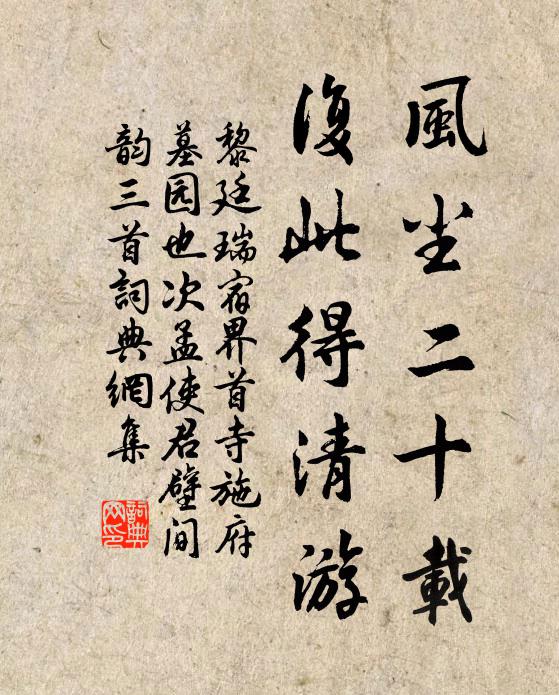 風尘二十載
復此得清游
黎廷瑞宿界首寺施府
墓园也次孟使君壁间
韵三首詞典網集
詞典
网印